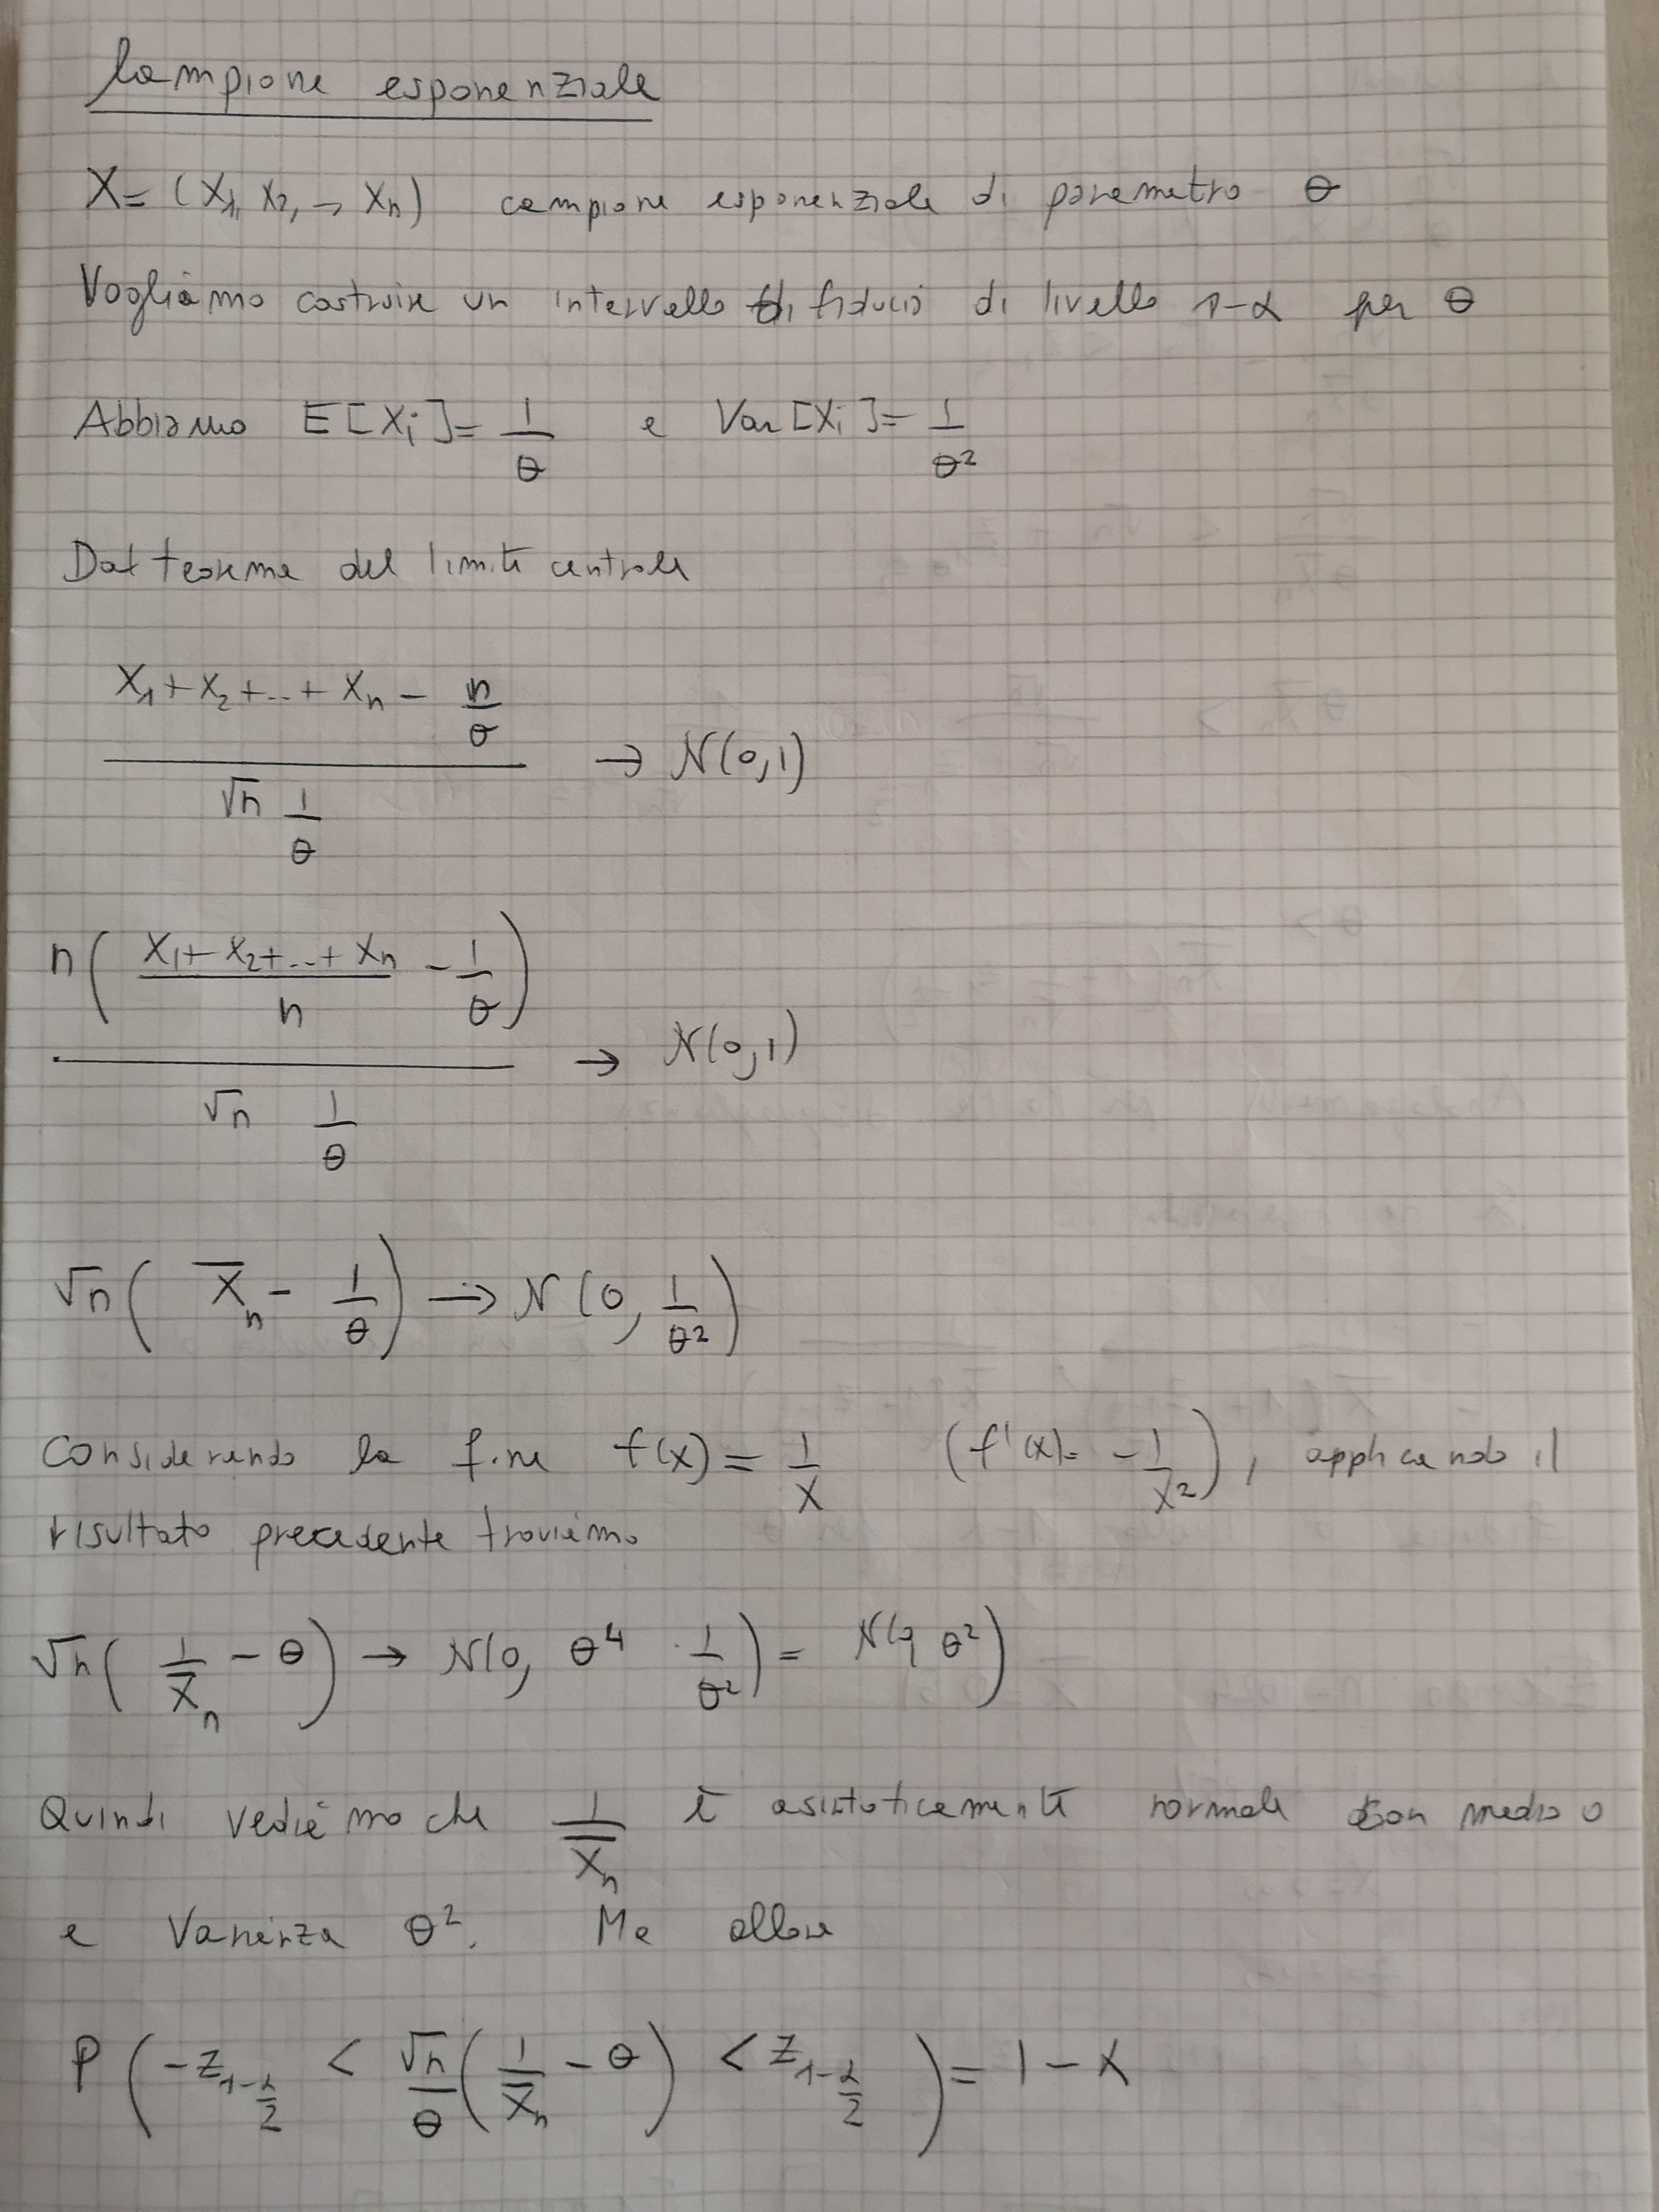 Campione esponenziale
X = (X1, X2, → Xn) campione esponenziale di parametro θ
Vogliamo costruire un intervallo di fiducia di livello 1-α per θ
Abbiamo E[Xi] = 1/θ e Var[Xi] = 1/θ²
Dal teorema del limite centrale
(X1 + X2 + ... + Xn - n/θ) / (√n 1/θ) → N(0,1)
n( (X1 + X2 + ... + Xn)/n - 1/θ ) / (√n 1/θ) → N(0,1)
√n( X̄n - 1/θ ) → N(0, 1/θ²)
Considerando la f.ne f(x) = 1/x (f'(x) = -1/x²), applicando il
risultato precedente troviamo
√n( 1/X̄n - θ ) → N(0, θ⁴ · 1/θ²) = N(0, θ²)
Quindi vediamo che 1/X̄n è asintoticamente normale con media 0
e Varianza θ². Ma allora
P( -z1-α/2 < √n/θ ( 1/X̄n - θ ) < z1-α/2 ) = 1 - α